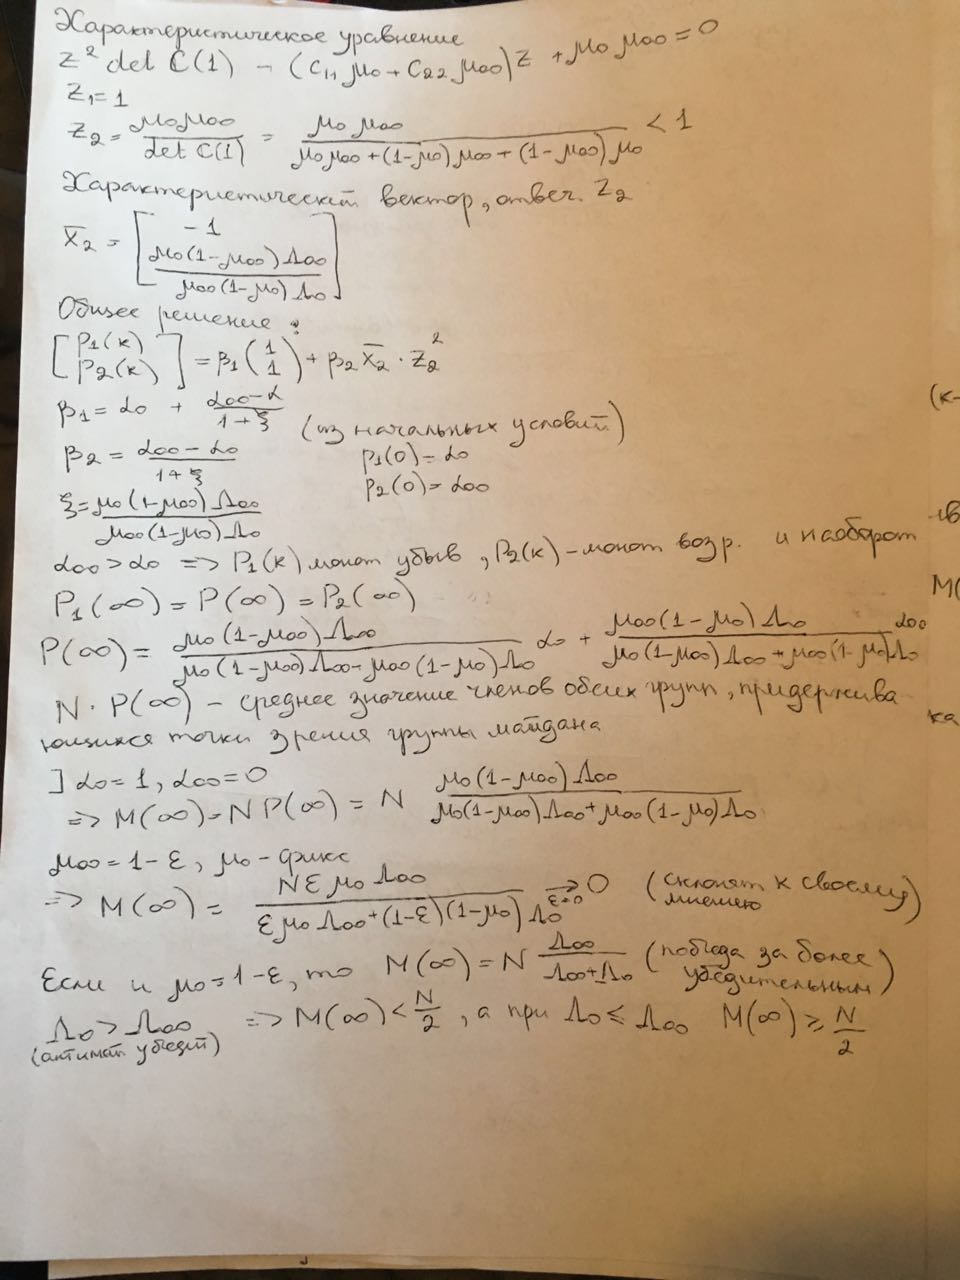 Характеристическое уравнение
z² det C(1) - (c₁₁ μ₀ + c₂₂ μ₀₀) z + μ₀ μ₀₀ = 0
z₁ = 1
z₂ = μ₀μ₀₀ / det C(1) = μ₀ μ₀₀ / (μ₀ μ₀₀ + (1-μ₀) μ₀₀ + (1-μ₀₀) μ₀) < 1
Характеристический вектор, отвеч. z₂
x̄₂ = [ -1 ; μ₀(1-μ₀₀) Λ₀₀ / μ₀₀(1-μ₀) Λ₀ ]
Общее решение:
[ P₁(k) ; P₂(k) ] = β₁ (1 ; 1) + β₂ x̄₂ · z₂²
β₁ = α₀ + (α₀₀ - α) / (1 + ξ) (из начальных условий)
β₂ = (α₀₀ - α₀) / (1 + ξ) P₁(0) = α₀
P₂(0) = α₀₀
ξ = μ₀(1-μ₀₀) Λ₀₀ / μ₀₀(1-μ₀) Λ₀
α₀₀ > α₀ => P₁(k) монот убыв, P₂(k) - монот возр. и наоборот
P₁(∞) = P(∞) = P₂(∞)
P(∞) = μ₀(1-μ₀₀)Λ₀₀ / (μ₀(1-μ₀₀)Λ₀₀ - μ₀₀(1-μ₀)Λ₀) α₀ + μ₀₀(1-μ₀)Λ₀ / (μ₀(1-μ₀₀)Λ₀₀ + μ₀₀(1-μ₀)Λ₀) α₀₀
N · P(∞) - среднее значение членов обеих групп, придержива
ющихся точки зрения группы майдана
] α₀ = 1, α₀₀ = 0
=> M(∞) = N P(∞) = N μ₀(1-μ₀₀)Λ₀₀ / (μ₀(1-μ₀₀)Λ₀₀ + μ₀₀(1-μ₀)Λ₀)
μ₀₀ = 1-ε, μ₀ - фикс
=> M(∞) = Nε μ₀ Λ₀₀ / (ε μ₀ Λ₀₀ + (1-ε)(1-μ₀) Λ₀) → 0 ε→0 (склонят к своему мнению)
Если и μ₀ = 1-ε, то M(∞) = N Λ₀₀ / (Λ₀₀ + Λ₀) (победа за более убедительным)
Λ₀ > Λ₀₀ => M(∞) < N/2, а при Λ₀ ≤ Λ₀₀ M(∞) ≥ N/2
(антимай. убедит)
(k-
M(
ка